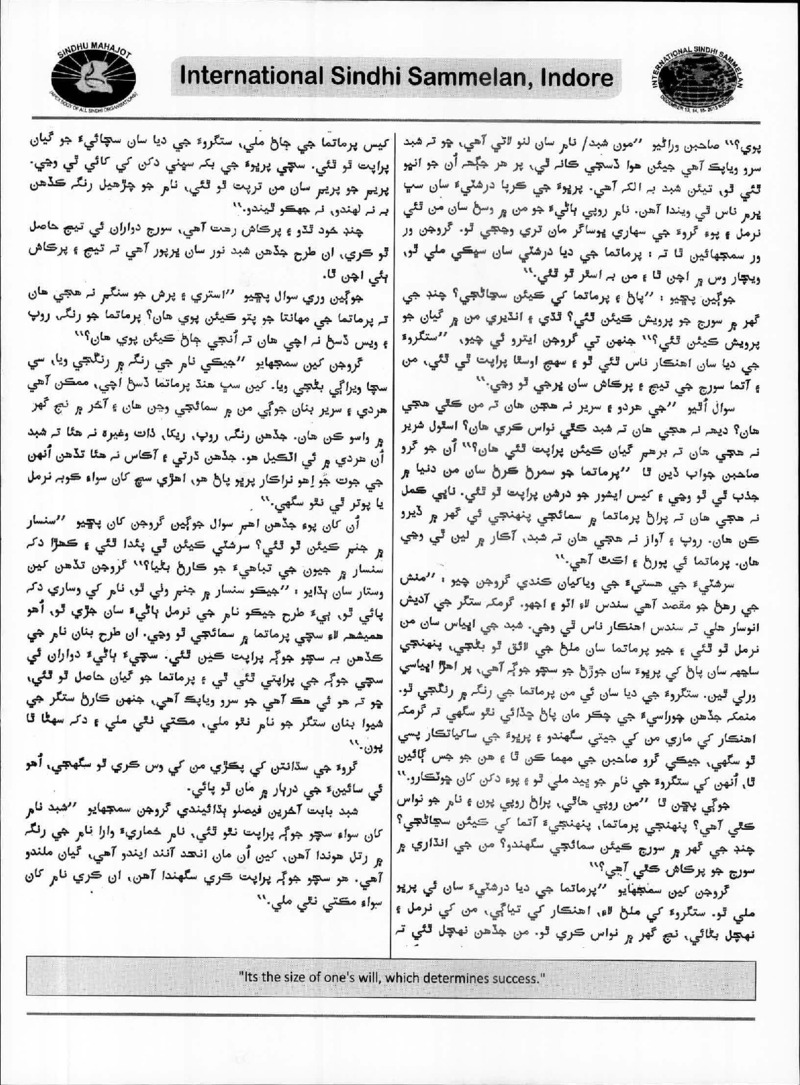 SINDHU MAHAJOT
International Sindhi Sammelan, Indore
INTERNATIONAL SINDHI SAMMELAN
پوي؟“ صاحبن وراڻيو ”مون شبد/ نام سان لنو لاتي آهي، ڇو ته شبد
سرو وياپڪ آهي جيئن هوا ڏسجي ڪانه ٿي، پر هر جڳهه اُن جو انڀو
ٿئي ٿو، تيئن شبد به الکہ آهي. پرڀوءَ جي ڪرپا درشٽيءَ سان سڀ
ڀرم ناس ٿي ويندا آهن. نام روپي ٻاڻيءَ جو من ۾ وسڻ سان من ٿئي
نرمل ۽ پوءِ گروءَ جي سهاري ڀوساگر مان تري وڃجي ٿو. گروجن ور
ور سمجهائين ٿا ته : پرماتما جي ديا درشٽي سان سڀڪي ملي ٿو،
ويچار وس ۾ اچن ٿا ۽ من به اسٿر ٿو ٿئي.“
جوڳين پڇيو : ”پاڻ ۽ پرماتما کي ڪيئن سڃاڻجي؟ چنڊ جي
گهر ۾ سورج جو پرويش ڪيئن ٿئي؟ ٿڌي ۽ انڌيري من ۾ گيان جو
پرويش ڪيئن ٿئي؟“ جنهن تي گروجن ايترو ئي چيو، ”ستگروءَ
جي ديا سان اهنڪار ناس ٿئي ٿو ۽ سهج اوسٿا پراپت ٿي ٿئي، من
۽ آتما سورج جي تيج ۽ پرڪاش سان ڀرجي ٿو وڃي.“
سوال اُٿيو ”جي هردو ۽ سرير نه هجن هان ته من ڪٿي هجي
هان؟ ديهہ نه هجي هان ته شبد ڪٿي نواس ڪري هان؟ اسٿول شرير
نه هجي هان ته برهم گيان ڪيئن پراپت ٿئي هان؟“ اُن جو گرو
صاحبن جواب ڏين ٿا ”پرماتما جو سمرڻ ڪرڻ سان من دنيا ۾
جذب ٿي ٿو وڃي ۽ کيس ايشور جو درشن پراپت ٿو ٿئي. ناڀي ڪمل
نه هجي هان ته پراڻ پرماتما ۾ سمائجي پنهنجي ئي گهر ۾ ڏيرو
ڪن هان. روپ ۽ آواز نه هجي هان ته شبد، آڪار ۾ لين ٿي وڃي
هان. پرماتما ئي پورڻ ۽ اڪٿ آهي.“
سرشٽيءَ جي هستيءَ جي وياکيان ڪندي گروجن چيو : ”منش
جي رهڻ جو مقصد آهي سندس لاءِ اٽو ۽ اجهو. گرمک ستگر جي آديش
انوسار هلي ته سندس اهنڪار ناس ٿي وڃي. شبد جي اڀياس سان من
نرمل ٿو ٿئي ۽ جيو پرماتما سان ملڻ جي لائق ٿو بڻجي، پنهنجي
ساڃهہ سان پاڻ کي پرڀوءَ سان جوڙڻ جو سچو جوڳ آهي، پر اهڙا اڀياسي
ورلي ٿين. ستگروءَ جي ديا سان ئي من پرماتما جي رنگہ ۾ رنگجي ٿو.
منمک جڏهن چوراسيءَ جي چڪر مان پاڻ ڇڏائي نٿو سگهي ته گرمک
اهنڪار کي ماري من کي جيتي سگهندو ۽ پرڀوءَ جي ساکياتڪار پسي
ٿو سگهي، جيڪي گرو صاحبن جي مهما ڪن ٿا ۽ هن جو جس ڳائين
ٿا، اُنهن کي ستگروءَ جي نام جو ڀيد ملي ٿو ۽ پوءِ دکن کان ڇوٽڪارو.“
جوڳي پڇن ٿا ”من روپي هاٿي، پراڻ روپي پون ۽ نام جو نواس
ڪٿي آهي؟ پنهنجي پرماتما، پنهنجيءَ آتما کي ڪيئن سڃاڻجي؟
چنڊ جي گهر ۾ سورج ڪيئن سمائجي سگهندو؟ من جي انڌاري ۾
سورج جو پرڪاش ڪٿي آهي؟“
گروجن کين سمجهايو ”پرماتما جي ديا درشٽيءَ سان ئي پرڀو
ملي ٿو. ستگروءَ کي ملڻ لاءِ، اهنڪار کي تياڳي، من کي نرمل ۽
نهچل بڻائي، نج گهر ۾ نواس ڪري ٿو. من جڏهن نهچل ٿئي ته
کيس پرماتما جي ڄاڻ ملي، ستگروءَ جي ديا سان سچائيءَ جو گيان
پراپت ٿو ٿئي. سچي پرڀوءَ جي بک سڀني دکن کي کائي ٿي وڃي.
پريم جو پريم سان من ترپت ٿو ٿئي، نام جو چڙهيل رنگہ ڪڏهن
به نه لهندو، نه جهڪو ٿيندو.“
چنڊ خود ٿڌو ۽ پرڪاش رهت آهي، سورج دواران ئي تيج حاصل
ٿو ڪري، ان طرح جڏهن شبد نور سان ڀرپور آهي ته تيج ۽ پرڪاش
ٻئي اچن ٿا.
جوڳين وري سوال پڇيو ”استري ۽ پرش جو سنگم نه هجي هان
ته پرماتما جي مهانتا جو پتو ڪيئن پوي هان؟ پرماتما جو رنگہ، روپ
۽ ويس ڏسڻ نه اچي هان ته اُنجي ڄاڻ ڪيئن پوي هان؟“
گروجن کين سمجهايو ”جيڪي نام جي رنگہ ۾ رنگجي ويا، سي
سچا ويراڳي بڻجي ويا. کين سڀ هنڌ پرماتما ڏسڻ اچي، ممڪن آهي
هردي ۽ سرير بنان جوڳي من ۾ سمائجي وڃن هان ۽ آخر ۾ نج گهر
۾ واسو ڪن هان. جڏهن رنگہ، روپ، ريکا، ذات وغيره نه هئا ته شبد
اُن هردي ۾ ئي اٽڪيل هو. جڏهن ڌرتي ۽ آڪاس نه هئا تڏهن اُنهن
جي جوت جو اِهو نراڪار پرڀو پاڻ هو، اهڙي سچ کان سواءِ ڪوبه نرمل
يا پوتر ٿي نٿو سگهي.“
اُن کان پوءِ جڏهن اهم سوال جوڳين گروجن کان پڇيو ”سنسار
۾ جنم ڪيئن ٿو ٿئي؟ سرشٽي ڪيئن ٿي پئدا ٿئي ۽ ڪهڙا دک
سنسار ۾ جيون جي تباهيءَ جو ڪارڻ بڻيا؟“ گروجن تڏهن کين
وستار سان ٻڌايو : ”جيڪو سنسار ۾ جنم ولي ٿو، نام کي وساري دک
پائي ٿو، ٻيءَ طرح جيڪو نام جي نرمل ٻاڻيءَ سان جڙي ٿو، اُهو
هميشهہ لاءِ سچي پرماتما ۾ سمائجي ٿو وڃي. ان طرح بنان نام جي
ڪڏهن به سچو جوڳ پراپت ڪين ٿئي. سچيءَ ٻاڻيءَ دواران ئي
سچي جوڳ جي پراپتي ٿئي ٿي ۽ پرماتما جو گيان حاصل ٿو ٿئي،
ڇو ته هو ئي هڪ آهي جو سرو وياپڪ آهي، جنهن ڪارڻ ستگر جي
شيوا بنان ستگر جو نام نٿو ملي، مڪتي نٿي ملي ۽ دک سهڻا ٿا
پون.“
گروءَ جي سڌانتن کي پڪڙي من کي وس ڪري ٿو سگهجي، اُهو
ئي سائينءَ جي درٻار ۾ مان ٿو پائي.
شبد بابت آخرين فيصلو ٻڌائيندي گروجن سمجهايو ”شبد نام
کان سواءِ سچو جوڳ پراپت نٿو ٿئي، نام خماريءَ وارا نام جي رنگہ
۾ رتل هوندا آهن، کين اُن مان انحد آنند ايندو آهي، گيان ملندو
آهي. هو سچو جوڳ پراپت ڪري سگهندا آهن، ان ڪري نام کان
سواءِ مڪتي نٿي ملي.“
"Its the size of one's will, which determines success."